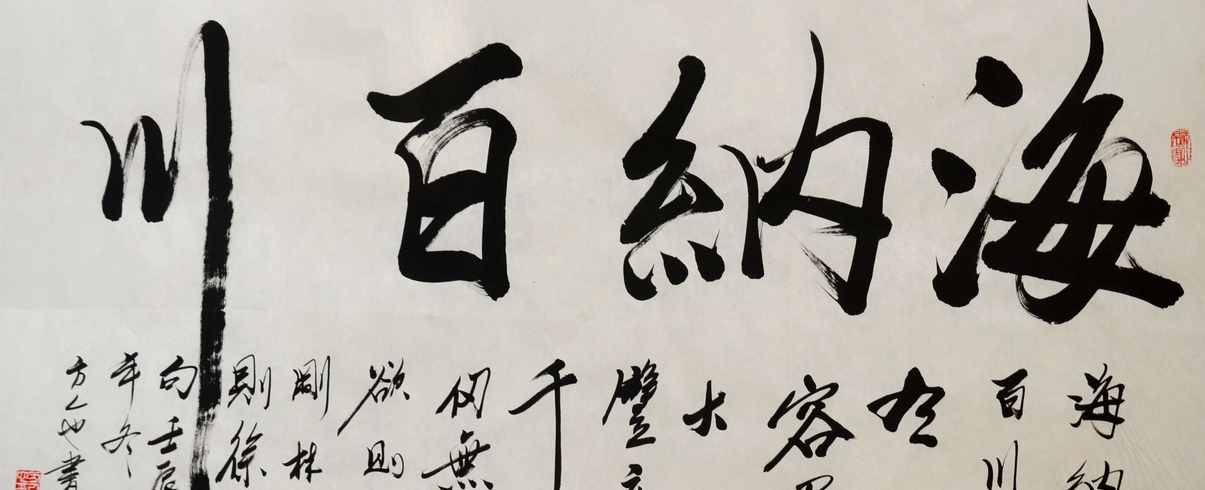 海納百川
海納
百川
有
容
大
壁立
千
仞無
欲則
剛林
則徐
句壬辰
年冬
書